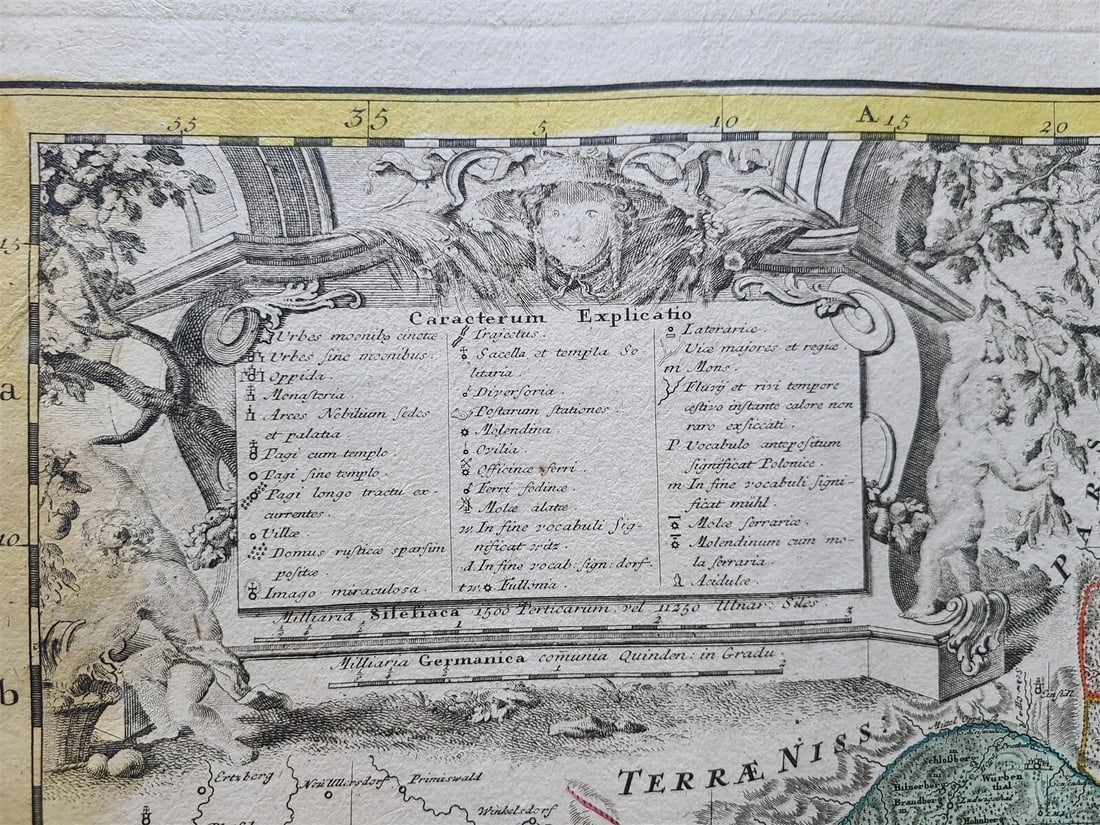 55 35 5 10 A 15 20
15
a
10
b
Caracterum Explicatio
Urbes moenibq cinctæ
Urbes sine moenibus.
Oppida.
Monasteria.
Arces Nobilium sedes
et palatia.
Pagi cum templo.
Pagi sine templo.
Pagi longo tractu ex-
currentes.
Villæ.
Domus rusticæ sparsim
positæ.
Imago miraculosa.
Trajectus.
Sacella et templa So
litaria.
Diversoria.
Postarum stationes.
Molendina
Ovilia.
Officinæ ferri.
Ferri fodinæ.
Molæ alatæ.
w. In fine vocabuli sig-
nificat witz.
d. In fine vocab: sign: dorf.
tw. Fullonia.
Laterariæ.
Viæ majores et regiæ.
m Mons.
Fluvij et rivi tempore
æstivo instante calore non
raro exsiccati.
P Vocabulo antepositum
significat Polonice.
m In fine vocabuli signi-
ficat mühl.
Molæ serrariæ.
Molendinum cum mo-
la serraria.
Acidulæ.
Milliaria Silesiaca 1500 Perticarum, vel 11250 Ulnar: Siles
1 2 3
Milliaria Germanica comunia Quinden: in Gradu
1 2
PARS
TERRÆ NISS.
Ertzberg
Neu Ullersdorf
Primiswald
Winkelsdorf
Schlosberg
Würben
thal
Brandberg
Hohnberg